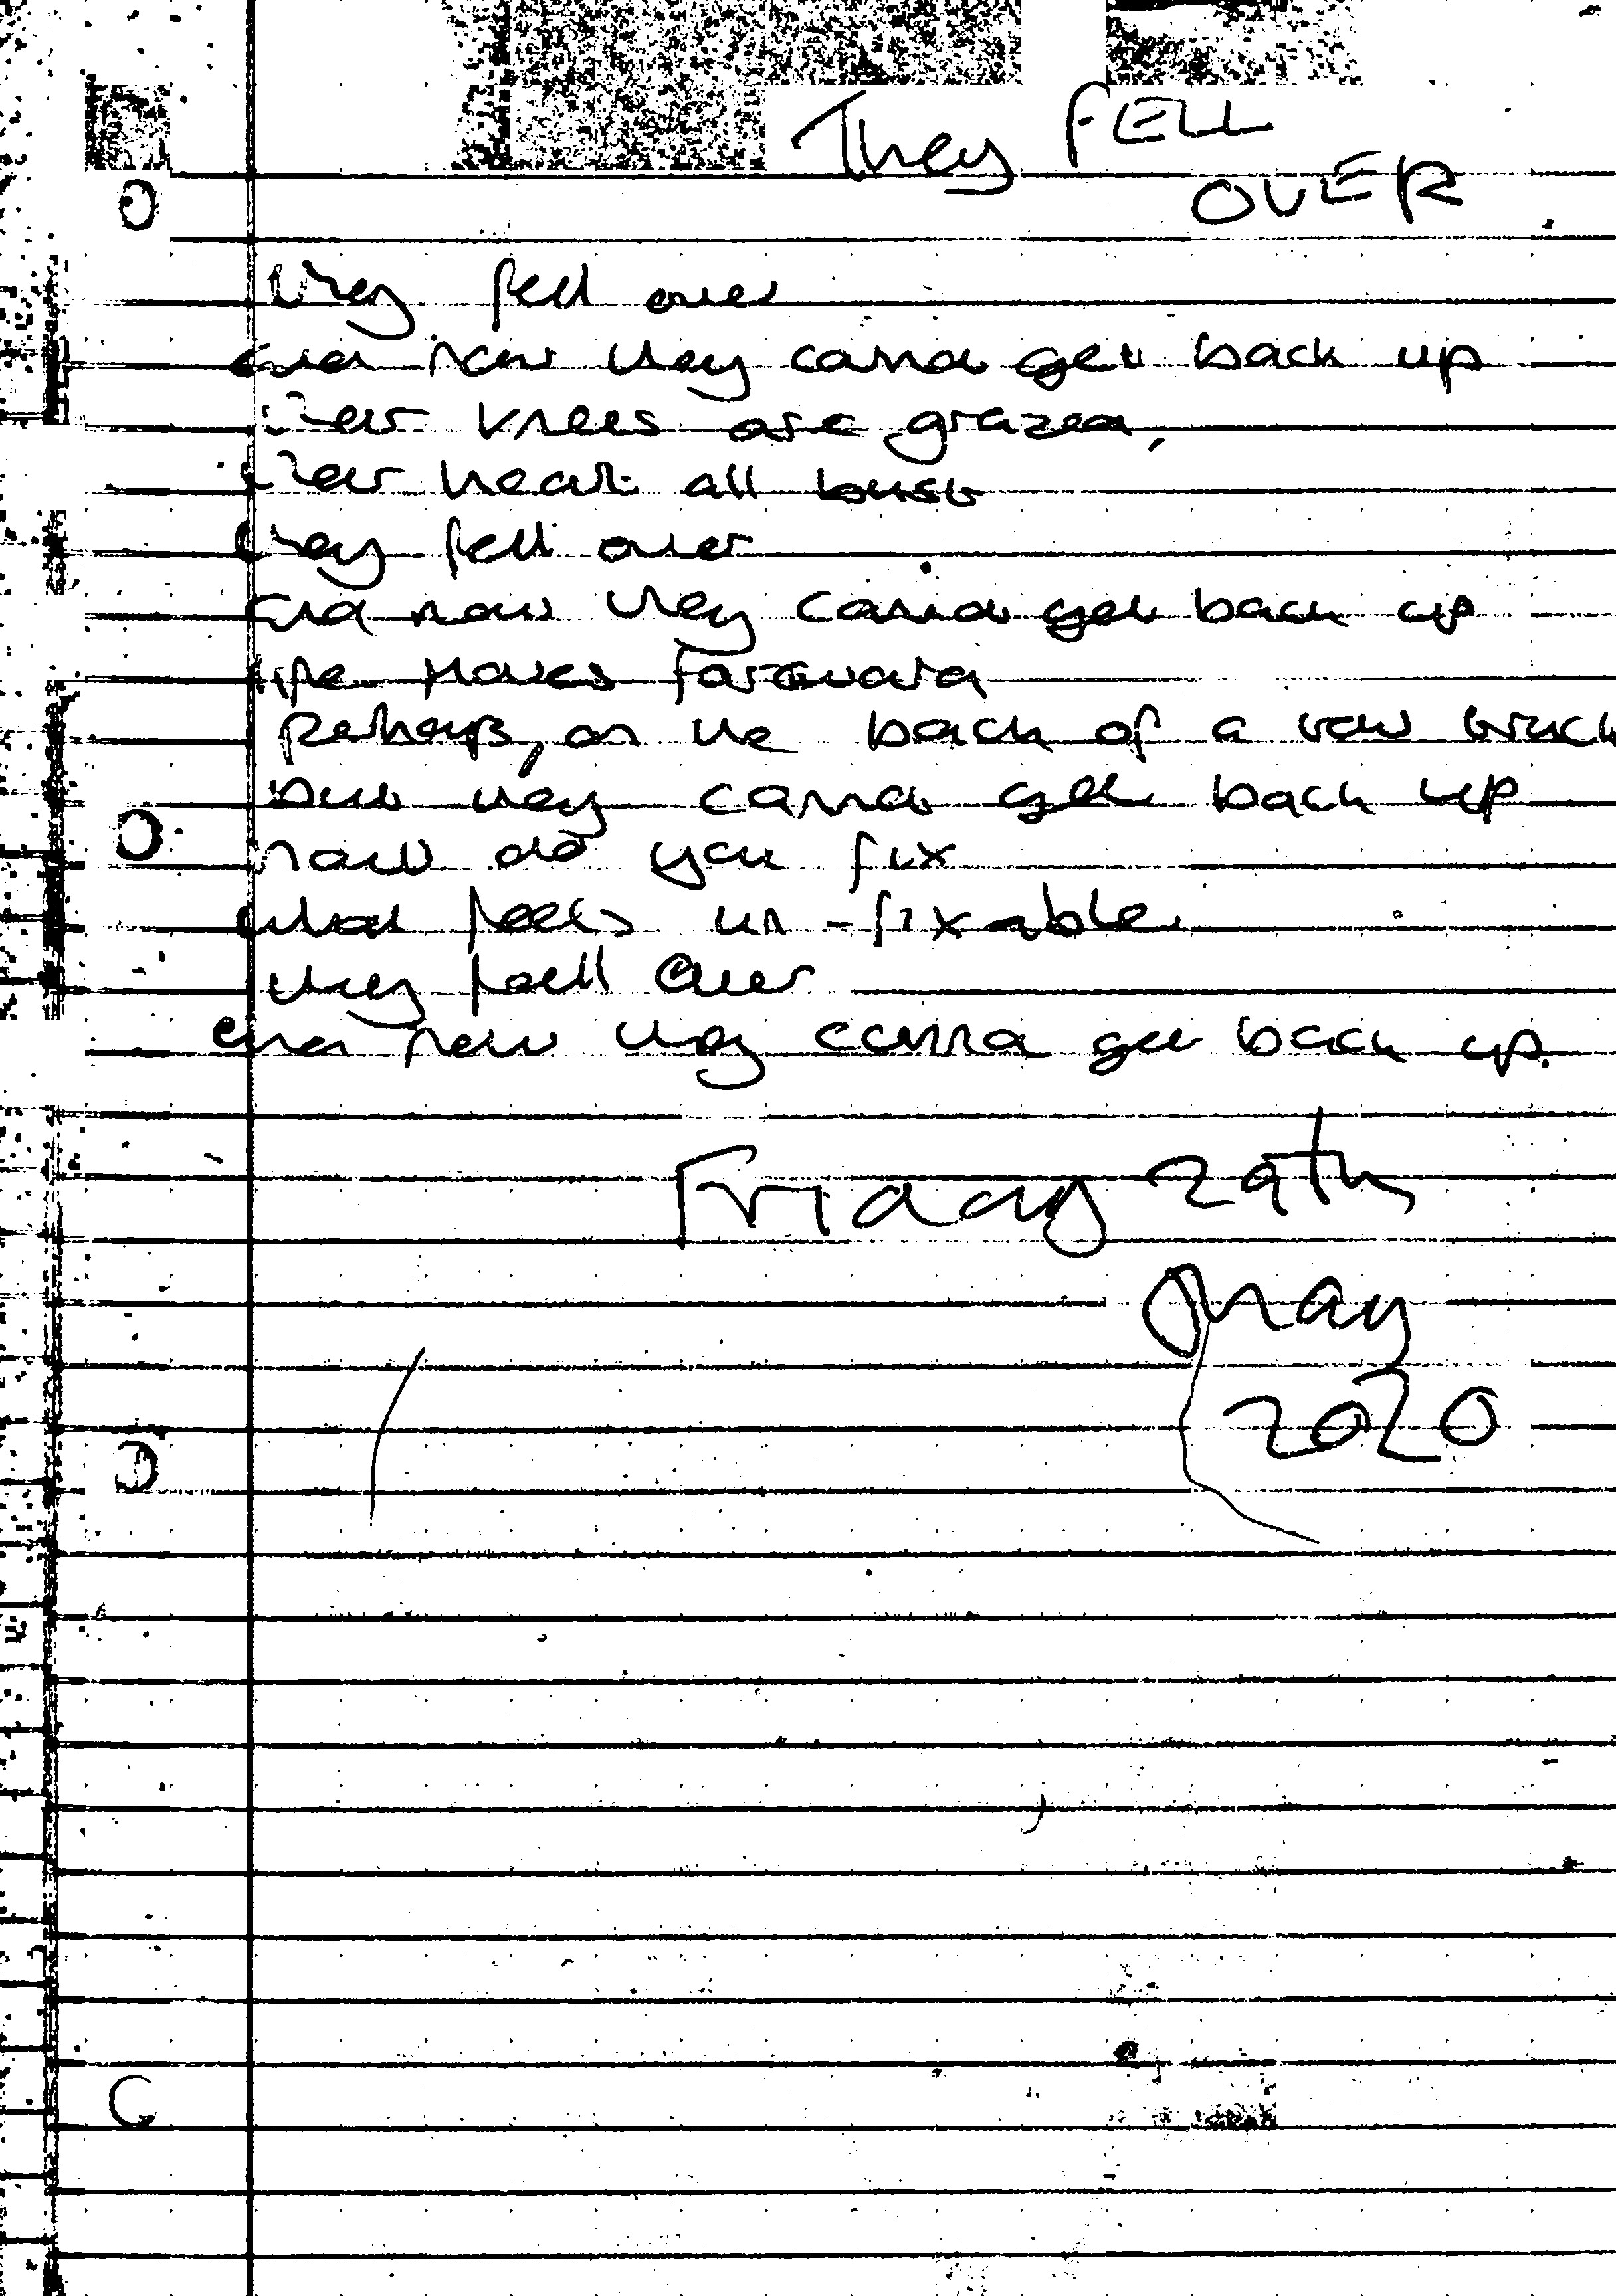 They FELL
OVER
they fell over
and now they cannot get back up
their knees are grazed,
their heart all bust
they fell over
and now they cannot get back up
life moves forward
perhaps, on the back of a tow truck
but they cannot get back up
how do you fix
what feels un-fixable
they fell over
and now they cannot get back up.
Friday 29th
May
2020